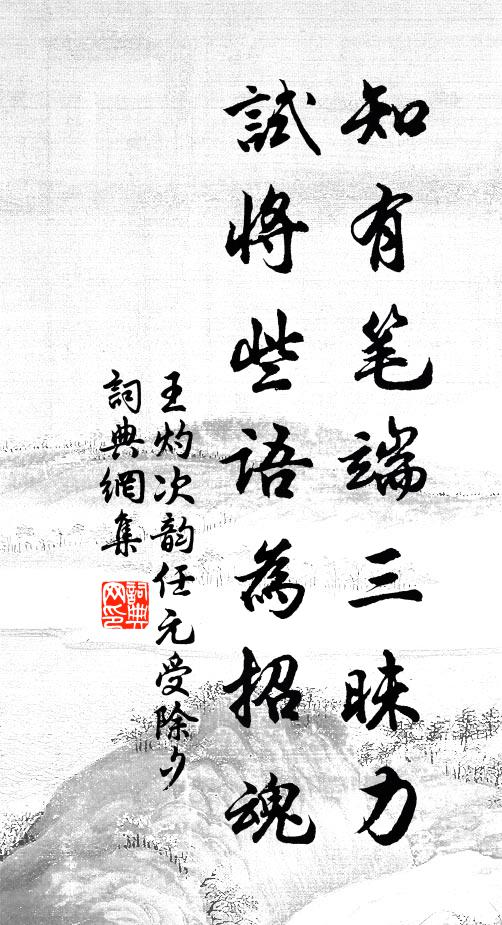 知有笔端三昧力
試將些語為招魂
王灼次韵任元受除夕
詞典網集
詞典網印